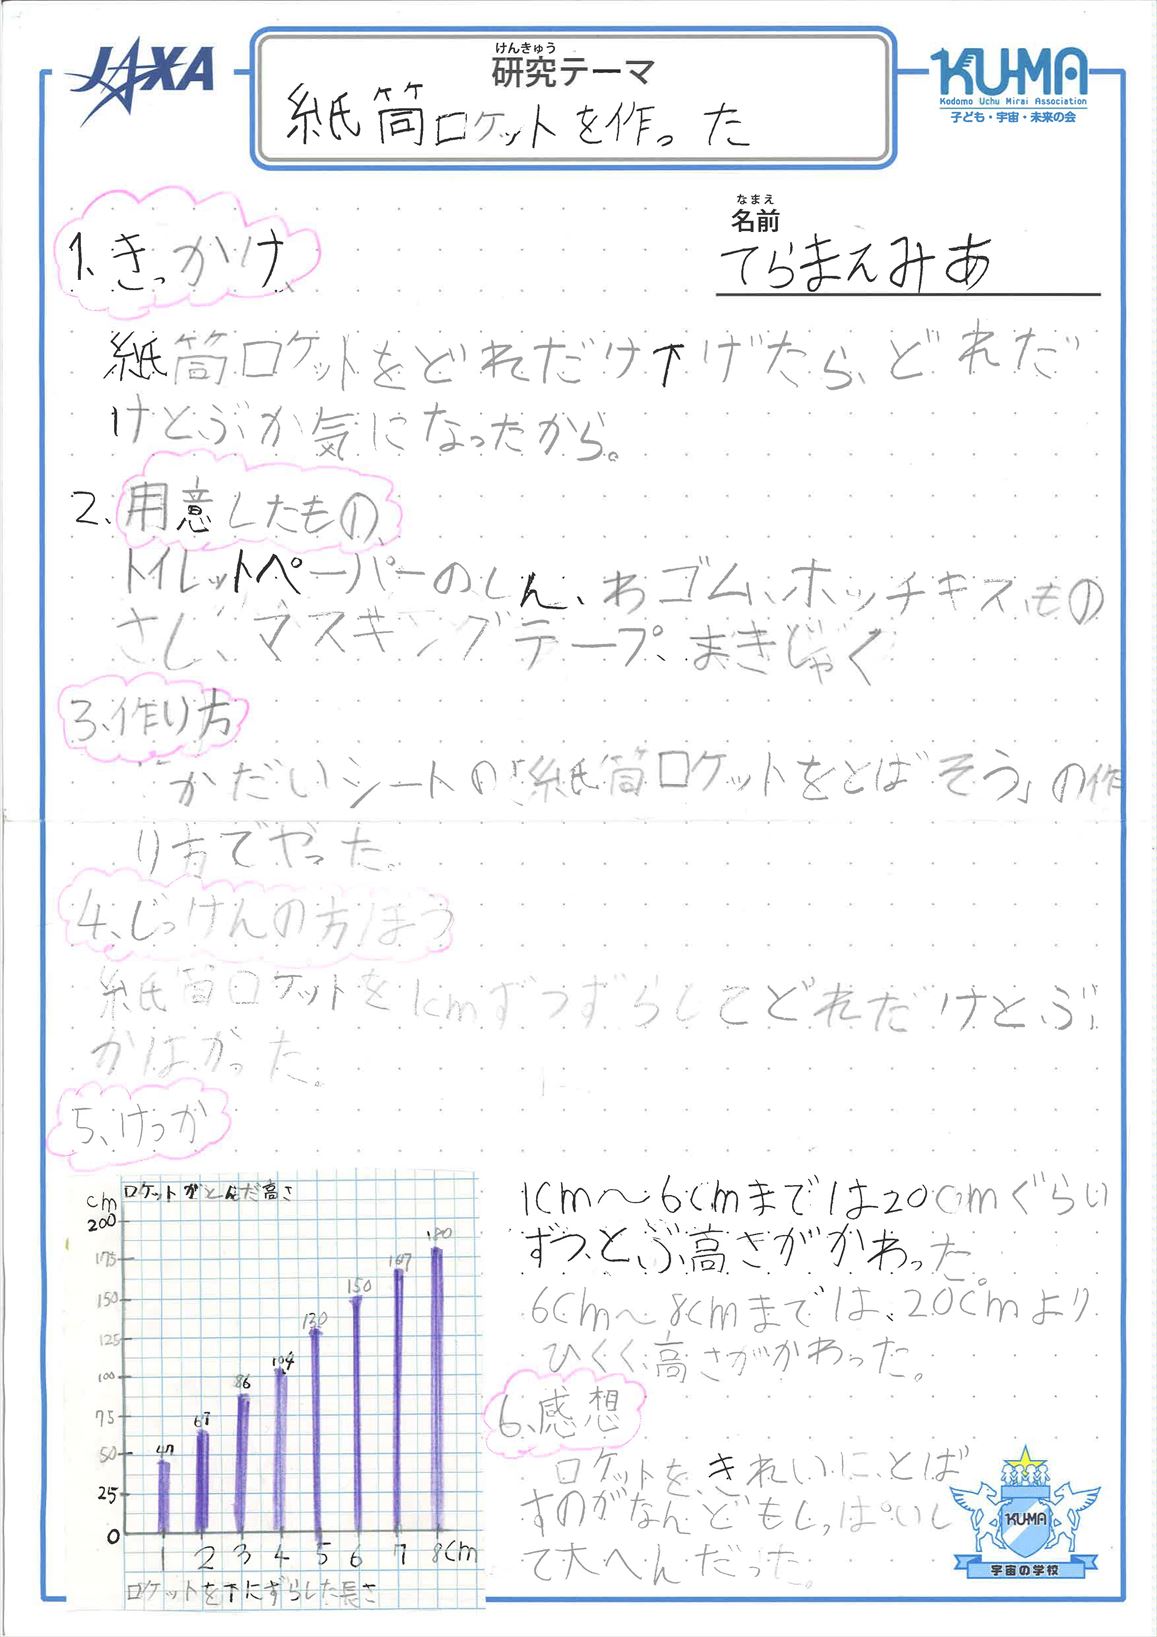 JAXA
けんきゅう
研究テーマ
紙筒ロケットを作った
KU-MA
Kodomo Uchu Mirai Association
子ども・宇宙・未来の会
なまえ
名前
てらまえみあ
1、きっかけ
紙筒ロケットをどれだけ下げたら、どれだ
けとぶか気になったから。
2、用意したもの
トイレットペーパーのしん、わゴム、ホッチキス、もの
さし、マスキングテープ、まきじゃく
3、作り方
かだいシートの「紙筒ロケットをとばそう」の作
り方でやった。
4、じっけんの方ほう
紙筒ロケットを1cmずつずらしてどれだけとぶ
かはかった。
5、けっか
ロケットがとんだ高さ
cm
200
175
150
125
100
75
50
25
0
47
67
86
104
130
150
167
180
1 2 3 4 5 6 7 8cm
ロケットを下にずらした長さ
1cm〜6cmまでは20cmぐらい
ずつとぶ高さがかわった。
6cm〜8cmまでは、20cmより
ひくく高さがかわった。
6、感想
ロケットを、きれいに、とば
すのがなんどもしっぱいし
て大へんだった。
KU-MA
宇宙の学校